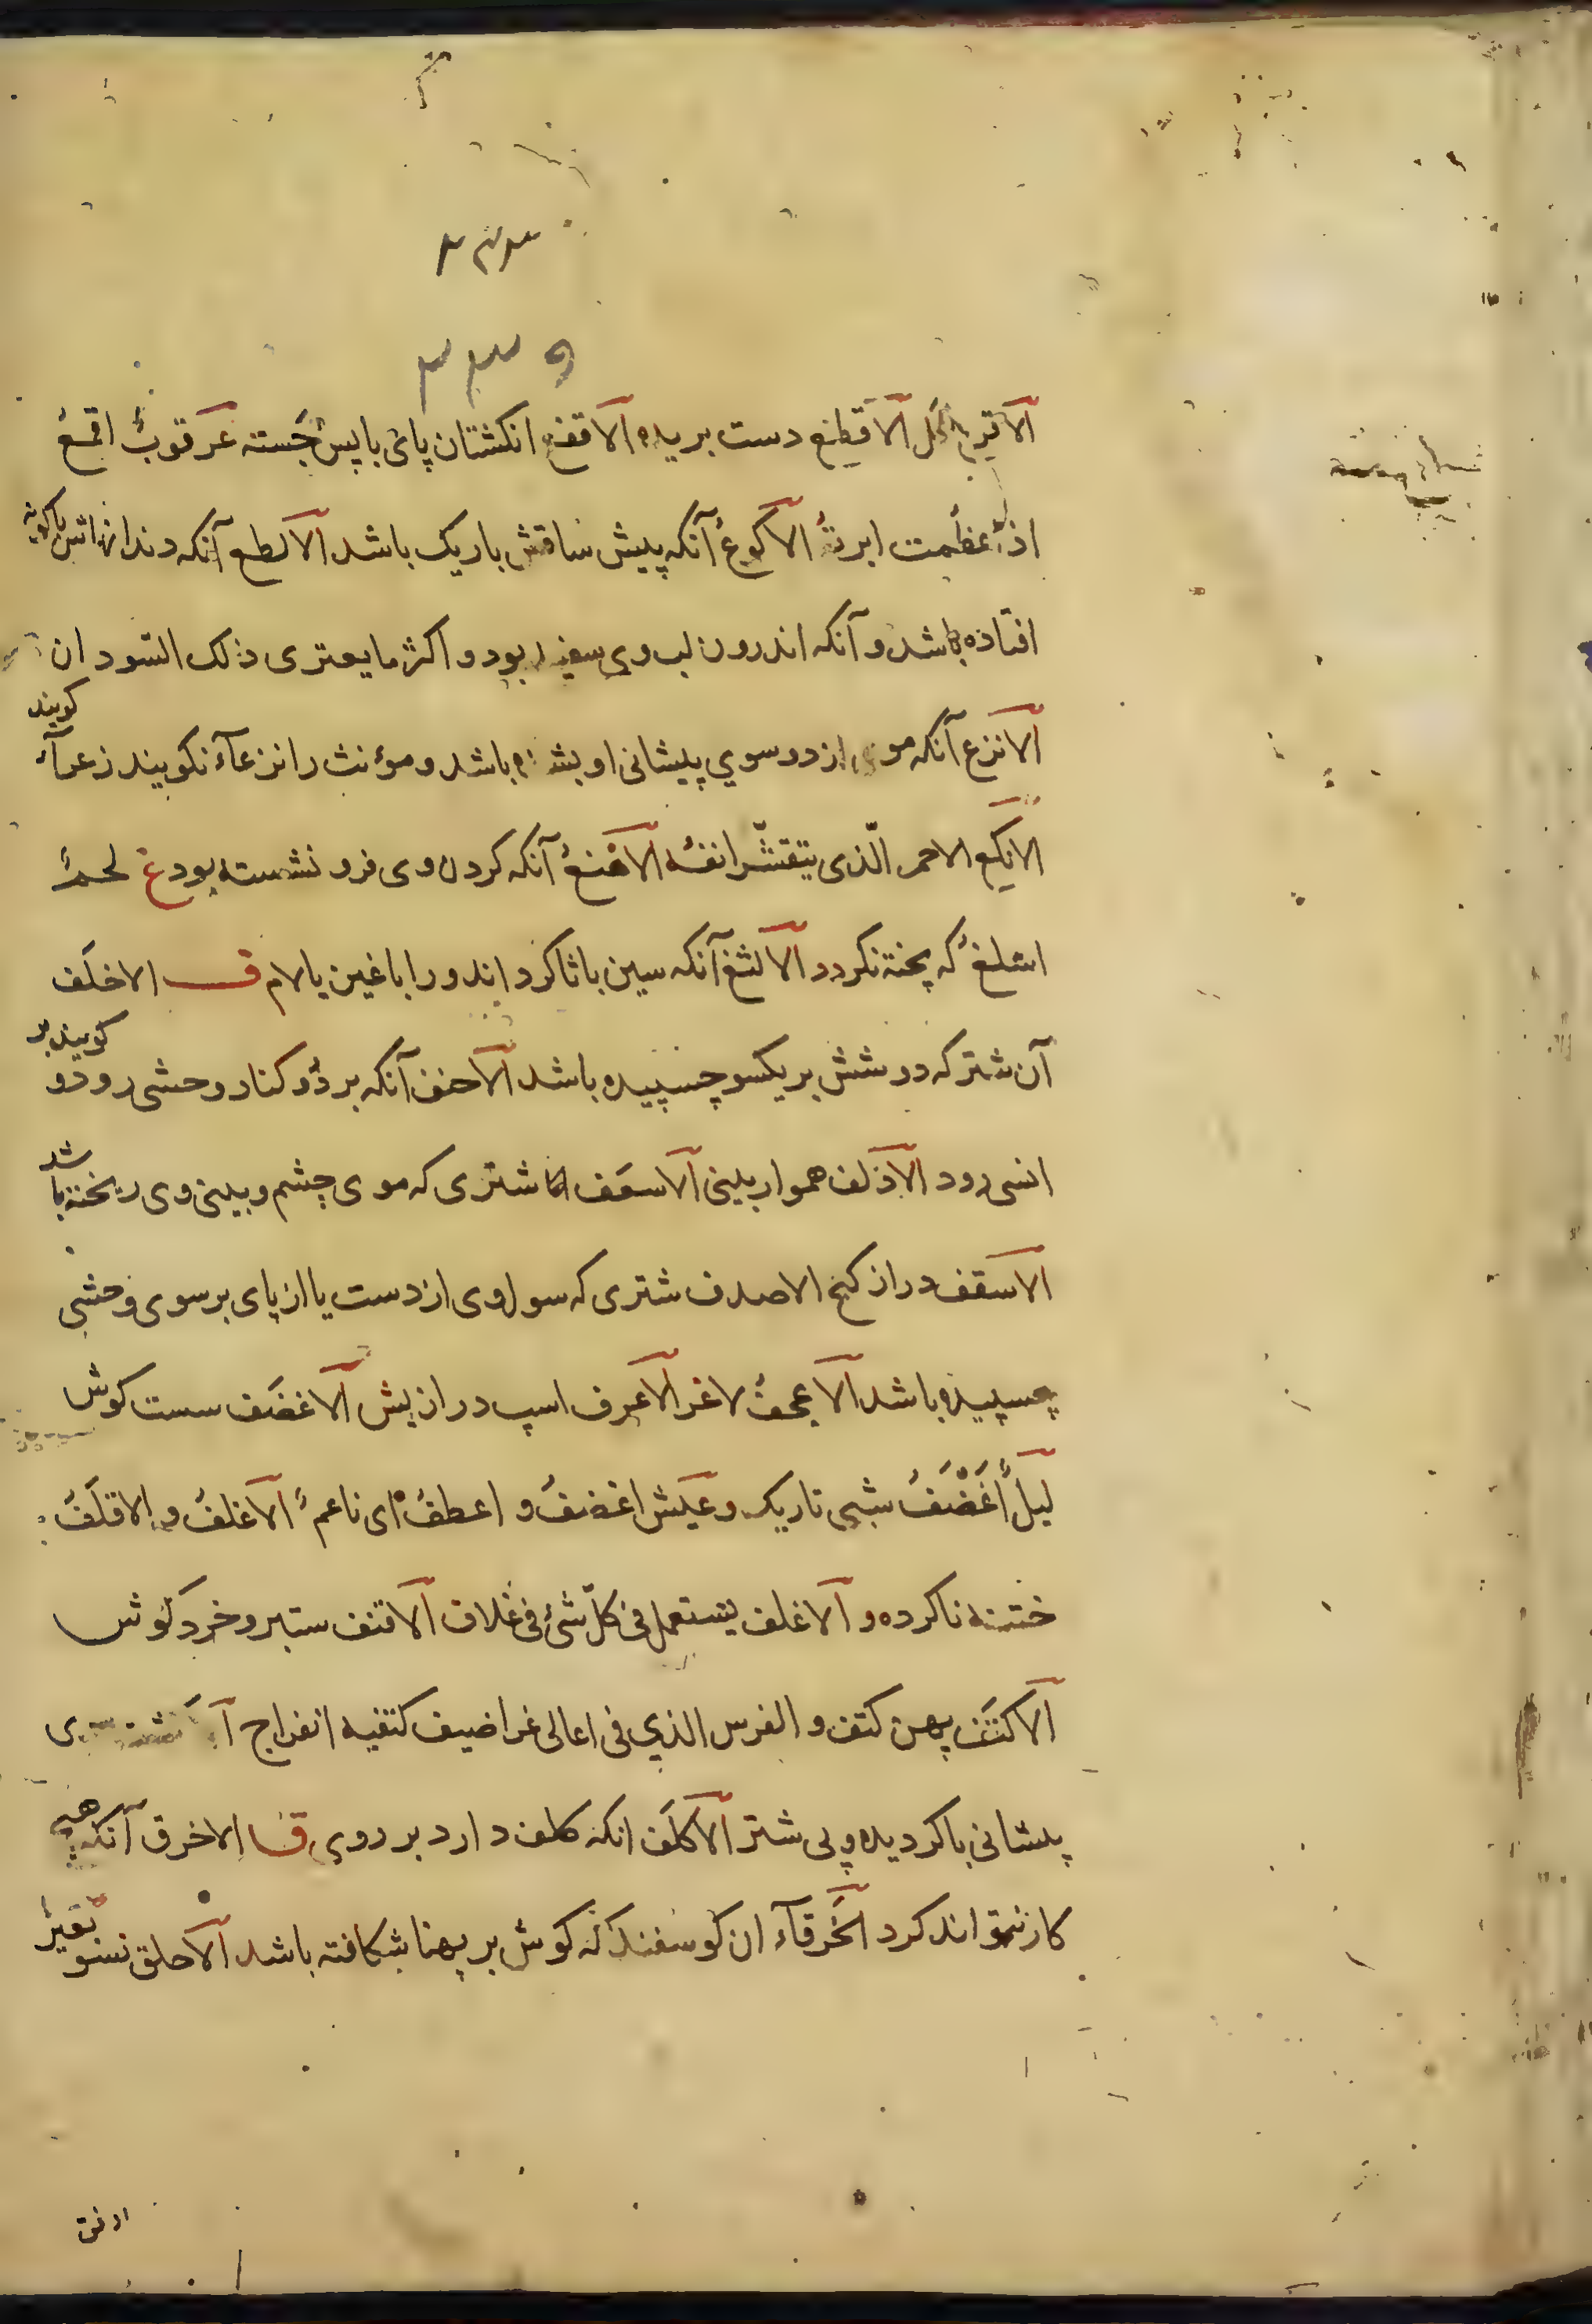 الاقرع کل الاقطع دست بریده الاقفع انکشتان پای باپس جسته عرقوبٌ اقمعُ
اذا عظُمت ابرتُه الاکوعُ آنکه پیش ساقش باریک باشد الالطع آنکه دندانهاش
افتاذه باشد و آنکه اندرون لب وی سفید بود و اکثر ما یعتری ذلک السودان
الانزع آنکه موی از دو سوي پیشانی او بشده باشد و مؤنث را نزعآء نکویند زعرآء کویند
الانکع الاحمر الّذی یتقشّر انفُه الاهْنعُ آنکه کردن وی فرو نشسته بود غ لحمٌ
اسْلغُ که پخته نکردد الالثغ آنکه سین با ثا کرداند و را با غین یا لام ف الاخلَف
آن شتر که دوشش بر یکسو چسپیده باشد الاحنف آنکه بر دُو کنار وحشی رود و کویند بر
انسی رود الاذلف هموار بینی الاسعَف شتری که موی چشم و بینی وی ریخته باشد
الاسقف دراز کنج الاصدف شتری که سول وی از دست یا از پای بر سوی وحشی
چسپیده باشد الاعجفُ لاغر الاعرف اسپ دراز بش الاغضَف سست کوش
لیلٌ أغَضْفُ شبی تاریک و عیش اغضفُ و اعطفُ ای ناعمٌ الاغلفُ و الاقلَفُ
ختنه ناکرده و الاغلف یستعمل فی کلّ شیٔ فی غلاف الاقنف ستبر و خرد کوش
الاکتَف پهن کتف و الفرس الذي فی اعالی غراضیف کتفیه انفراج
پیشانی باکردیده و پی شتر الاکلَف انکه کلف دارد بر روی ق الاخرق آنکه هیچ
کار نتواند کرد الخَرقآء ان کوسفند که کوش بر پهنا بشکافته باشد الاحلق